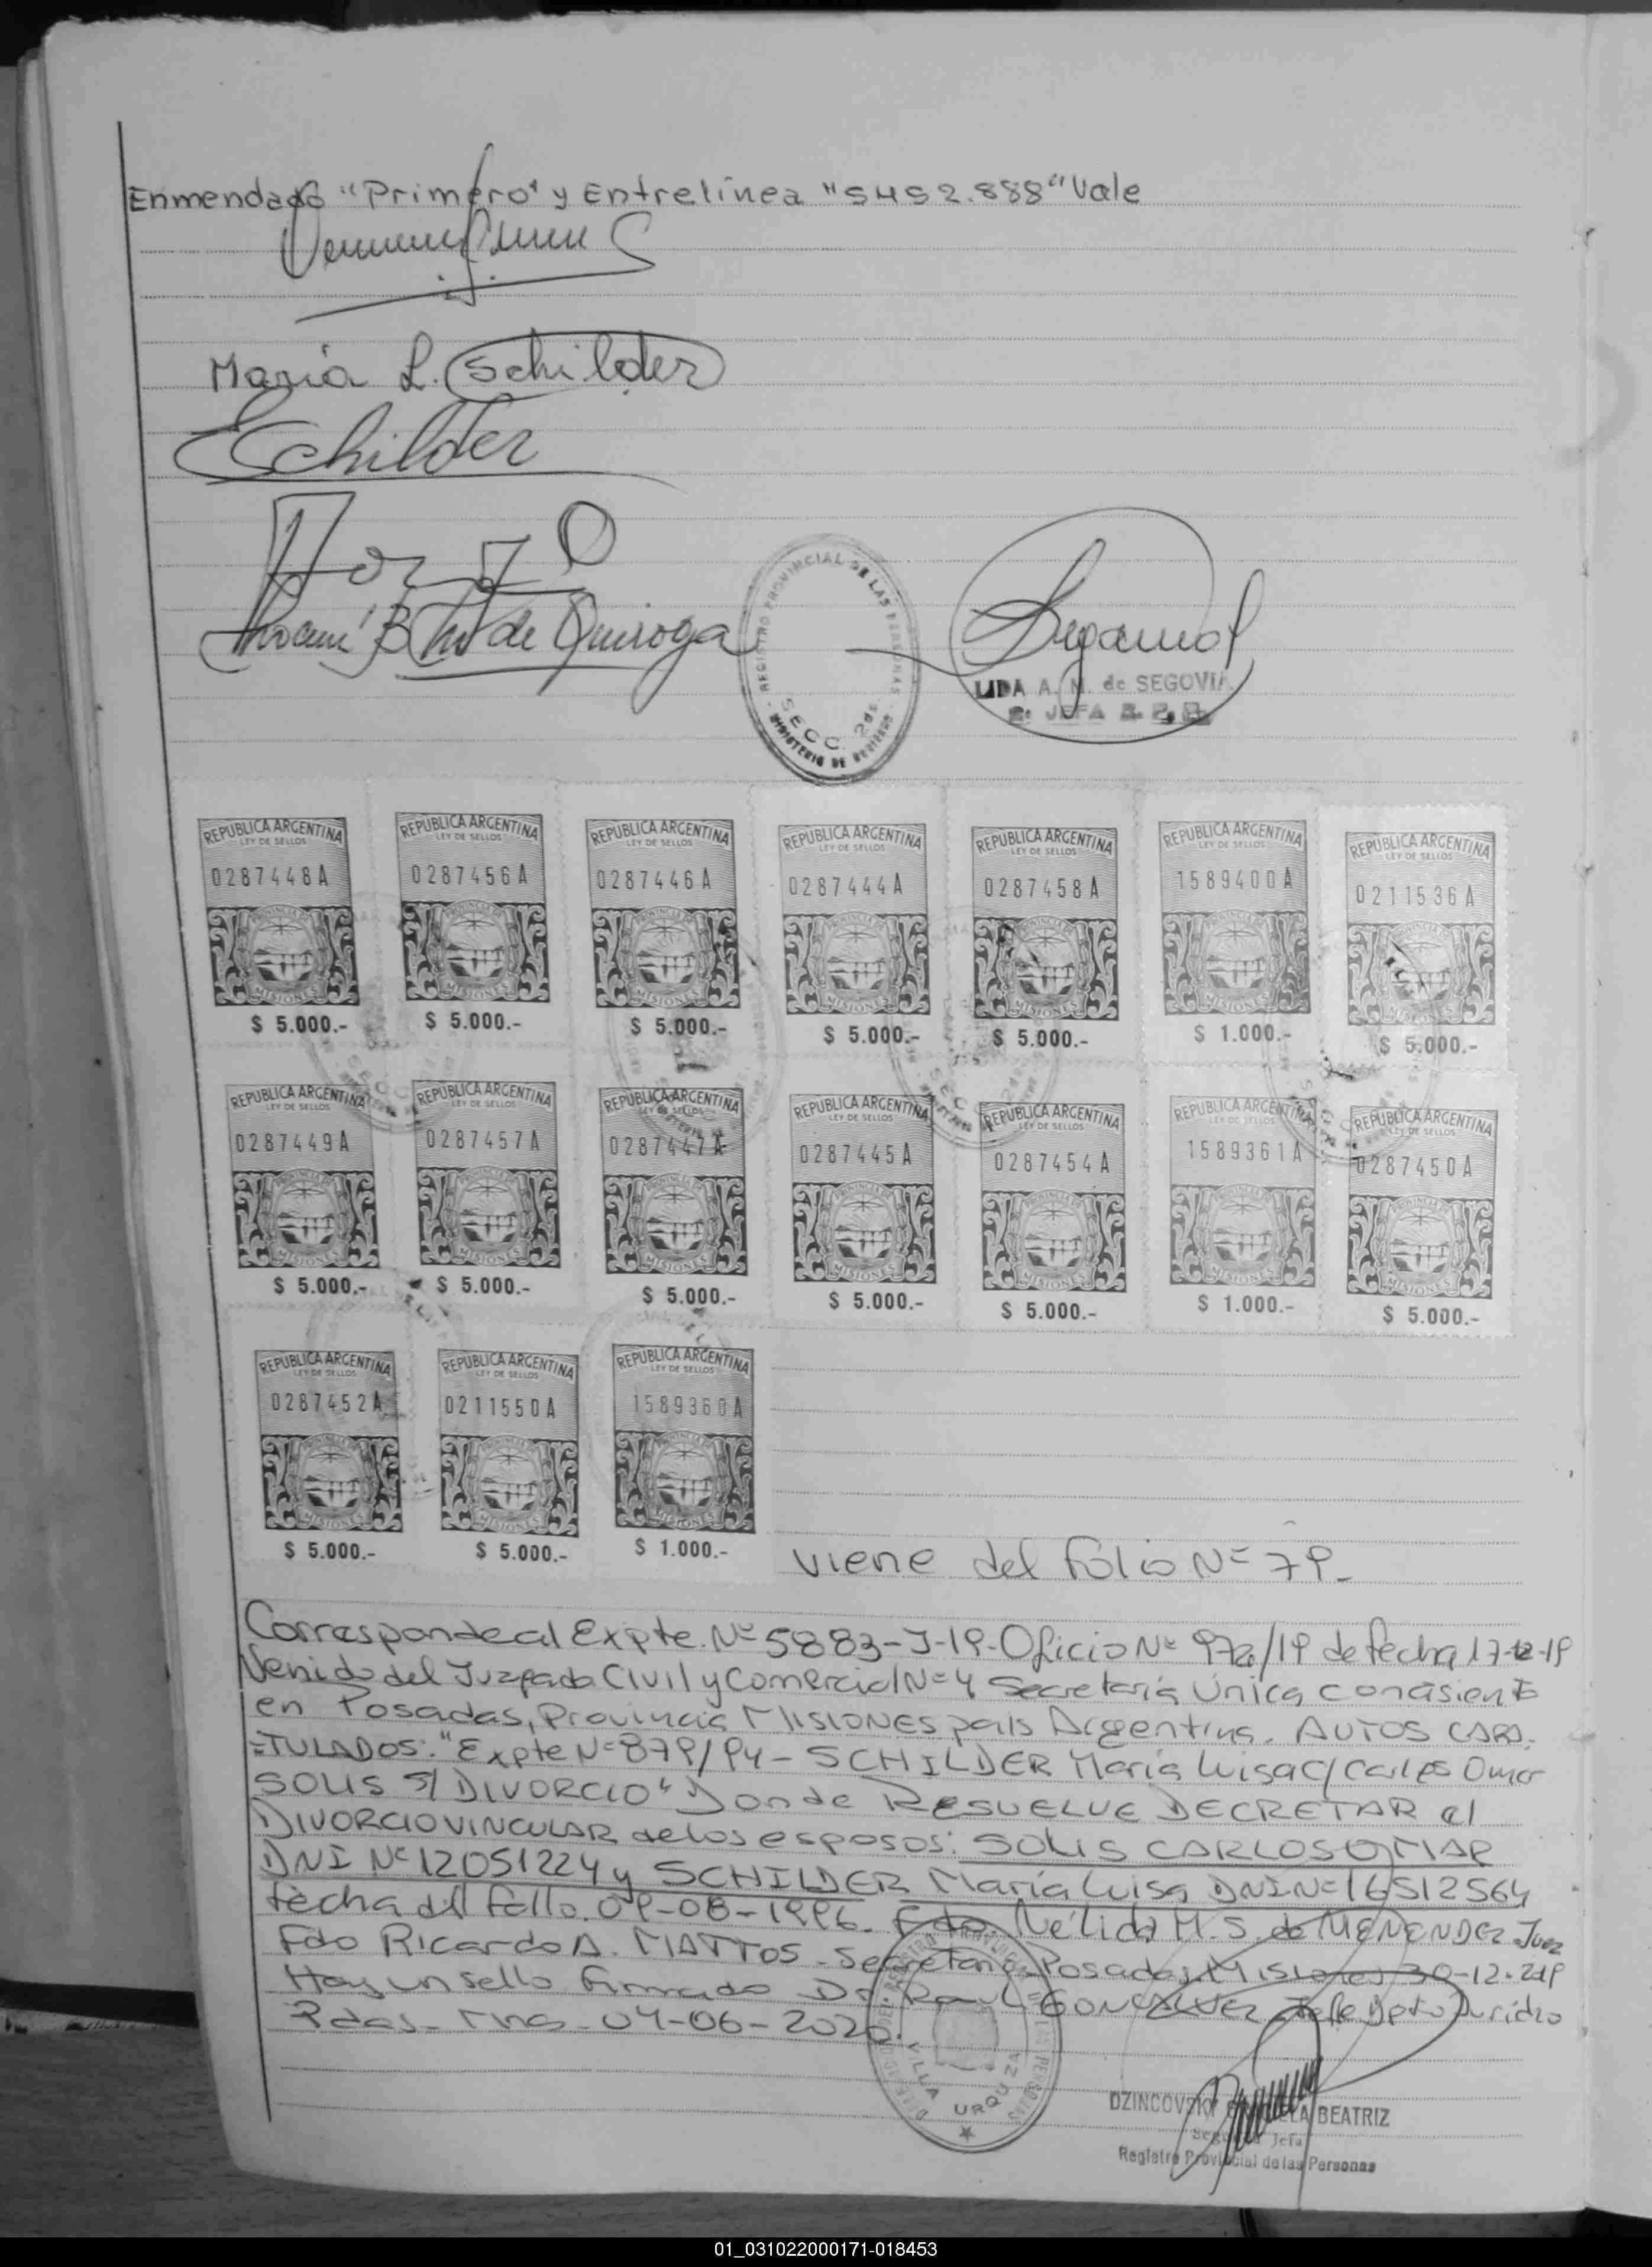 Enmendado "Primero" y Entrelínea "5452.888" Vale
María L. Schilder
Schilder
de Quiroga
REGISTRO PROVINCIAL DE LAS PERSONAS
SECC. 2da.
MINISTERIO DE GOBIERNO
LIDA A. M. de SEGOVIA
2: JEFA R. P. P.
REPUBLICA ARGENTINA REPUBLICA ARGENTINA REPUBLICA ARGENTINA REPUBLICA ARGENTINA REPUBLICA ARGENTINA REPUBLICA ARGENTINA REPUBLICA ARGENTINA
LEY DE SELLOS LEY DE SELLOS LEY DE SELLOS LEY DE SELLOS LEY DE SELLOS LEY DE SELLOS LEY DE SELLOS
0287448A 0287456A 0287446A 0287444A 0287458A 1589400A 0211536A
PROVINCIA DE PROVINCIA DE PROVINCIA DE PROVINCIA DE PROVINCIA DE PROVINCIA DE PROVINCIA DE
MISIONES MISIONES MISIONES MISIONES MISIONES MISIONES MISIONES
$ 5.000.- $ 5.000.- $ 5.000.- $ 5.000.- $ 5.000.- $ 1.000.- $ 5.000.-
REPUBLICA ARGENTINA REPUBLICA ARGENTINA REPUBLICA ARGENTINA REPUBLICA ARGENTINA REPUBLICA ARGENTINA REPUBLICA ARGENTINA REPUBLICA ARGENTINA
LEY DE SELLOS LEY DE SELLOS LEY DE SELLOS LEY DE SELLOS LEY DE SELLOS LEY DE SELLOS LEY DE SELLOS
0287449A 0287457A 0287447A 0287445A 0287454A 1589361A 0287450A
PROVINCIA DE PROVINCIA DE PROVINCIA DE PROVINCIA DE PROVINCIA DE PROVINCIA DE PROVINCIA DE
MISIONES MISIONES MISIONES MISIONES MISIONES MISIONES MISIONES
$ 5.000.- $ 5.000.- $ 5.000.- $ 5.000.- $ 5.000.- $ 1.000.- $ 5.000.-
REPUBLICA ARGENTINA REPUBLICA ARGENTINA REPUBLICA ARGENTINA
LEY DE SELLOS LEY DE SELLOS LEY DE SELLOS
0287452A 0211550A 1589360A
PROVINCIA DE PROVINCIA DE PROVINCIA DE
MISIONES MISIONES MISIONES
$ 5.000.- $ 5.000.- $ 1.000.-
viene del Folio Nº 79_
Corresponde al Expte. Nº 5883-J-19-Oficio Nº /19 de fecha 17-12-19
Venido del Juzgado Civil y Comercial Nº 4 Secretaría Única con asiento
en Posadas, Provincia MISIONES país Argentina. AUTOS CARA-
=TULADOS: "Expte Nº 879/94- SCHILDER María Luisa C/ Carlos Omar
SOLIS S/ DIVORCIO" Donde RESUELVE DECRETAR el
DIVORCIO VINCULAR de los esposos: SOLIS CARLOS OMAR
DNI Nº 12051224 y SCHILDER María Luisa DNI Nº 16512564
fecha del fallo. 09-08-1996. Fdo. Nélida M. S. de MENENDEZ-Juez
Fdo Ricardo A. MATTOS-Secretario-Posadas, Misiones 30-12-219
Hay un sello Firmado Dr. Raul GONCALVEZ Jefe Dpto Juridico
Pdas- Mnes- 04-06-2020.
DIRECCION DEL REGISTRO PROVINCIAL DE LAS PERSONAS
VILLA URQUIZA
DZINCOVSKY GRACIELA BEATRIZ
Segunda Jefa
Registro Provincial de las Personas
01_031022000171-018453